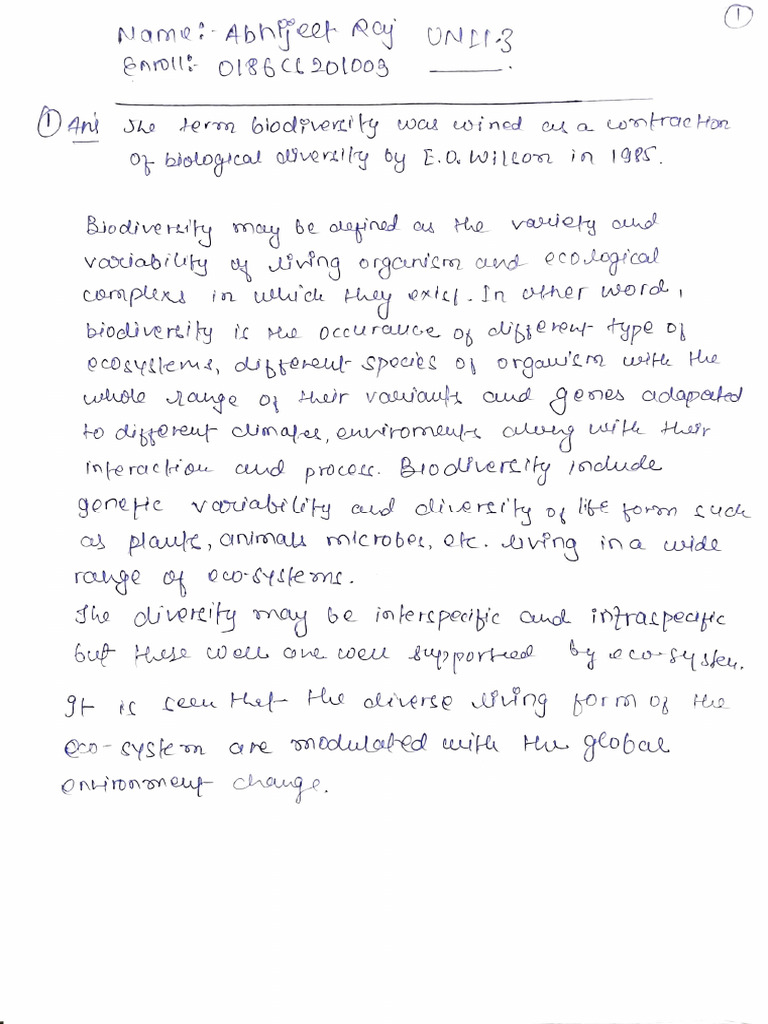 1
Name:- Abhijeet Raj UNIT-3
Enroll:- 0186CC201003
1 Ans The term biodiversity was coined as a contraction
of biological diversity by E.O. Wilson in 1985.
Biodiversity may be defined as the variety and
variability of living organism and ecological
complexs in which they exist. In other word,
biodiversity is the occurance of different type of
ecosystems, different species of organism with the
whole range of their variants and genes adapated
to different climates, enviroments along with their
interaction and process. Biodiversity include
genetic variability and diversity of life form such
as plants, animals microbes, etc. living in a wide
range of eco-systems.
The diversity may be interspecific and intraspecific
but these well are well supported by eco-system.
It is seen that the diverse living form of the
eco-system are modulated with the global
environment change.